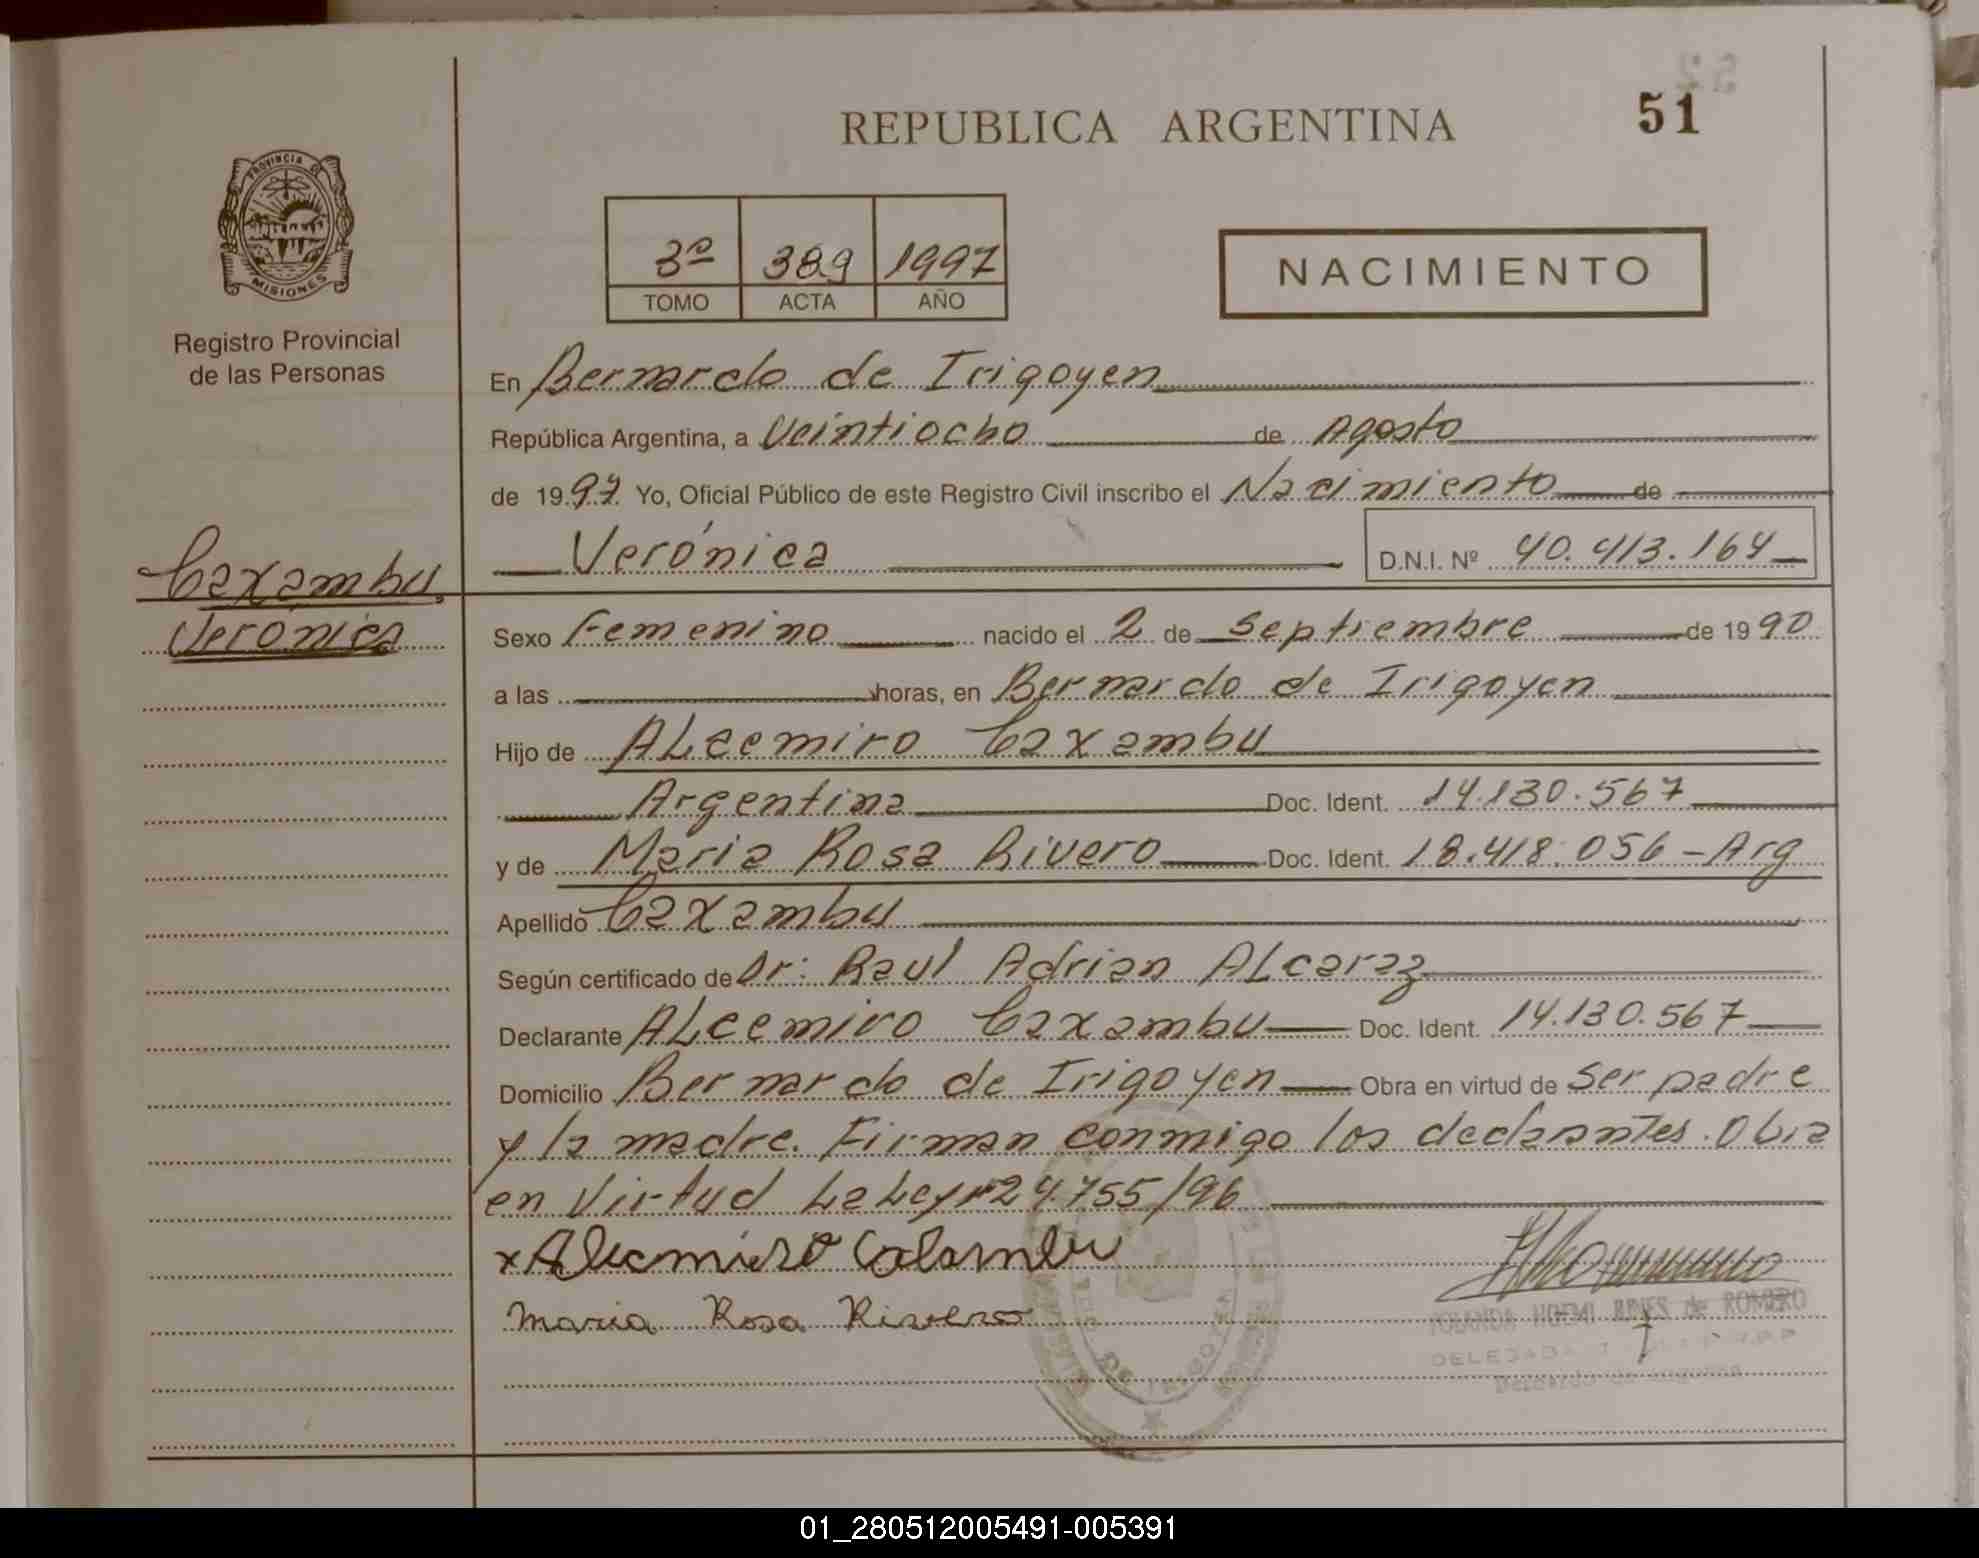 51
REPUBLICA ARGENTINA
PROVINCIA DE
MISIONES
Registro Provincial
de las Personas
3º 389 1997
TOMO ACTA AÑO
NACIMIENTO
En Bernardo de Irigoyen
República Argentina, a Veintiocho de Agosto
de 1997 Yo, Oficial Público de este Registro Civil inscribo el Nacimiento de
Verónica D.N.I. Nº 40.413.164
Caxambu
Verónica
Sexo Femenino nacido el 2 de Septiembre de 1990
a las horas, en Bernardo de Irigoyen
Hijo de ALcemiro Caxambu
Argentina Doc. Ident. 14.130.567
y de Maria Rosa Rivero Doc. Ident. 18.418.056 - Arg
Apellido Caxambu
Según certificado de Dr: Raul Adrian ALcaraz
Declarante ALcemiro Caxambu Doc. Ident. 14.130.567
Domicilio Bernardo de Irigoyen Obra en virtud de Ser padre
y la madre. Firman conmigo los declarantes. Obra
en Virtud La Ley nº 24.755/96
x Alcemiro
Maria Rosa Rivero
YOLANDA NOEMI de ROMERO
DELEGADA
Bernardo de Irigoyen
01_280512005491-005391